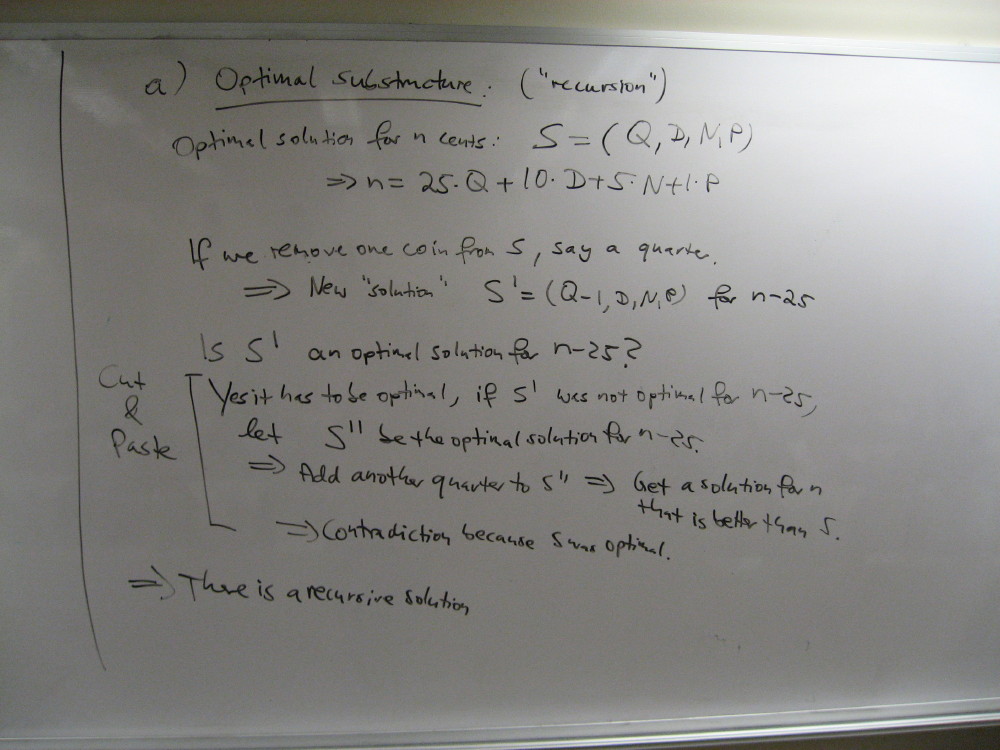 a) Optimal substructure: ("recursion")
Optimal solution for n cents: S = (Q, D, N, P)
⇒ n = 25·Q + 10·D + 5·N + 1·P
If we remove one coin from S, say a quarter.
⇒ New "solution" S' = (Q-1, D, N, P) for n-25
Is S' an optimal solution for n-25?
Cut
&
Paste
Yes it has to be optimal, if S' was not optimal for n-25,
let S'' be the optimal solution for n-25.
⇒ Add another quarter to S'' ⇒ Get a solution for n
that is better than S.
⇒ Contradiction because S was optimal.
⇒ There is a recursive solution